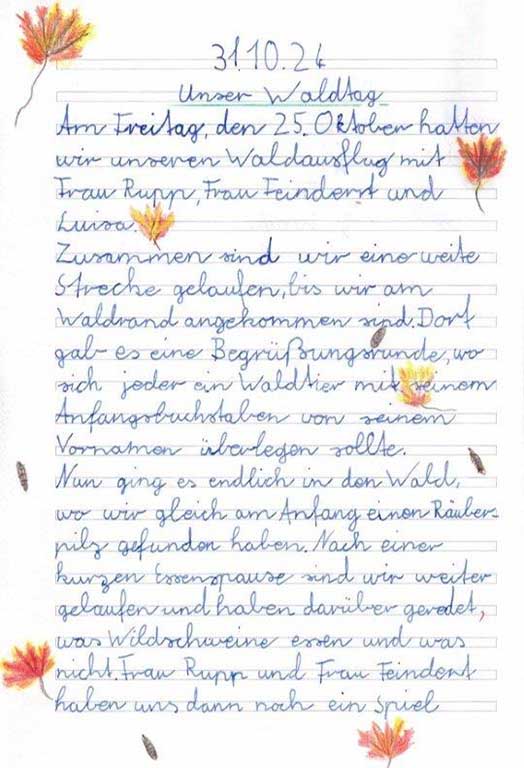 31.10.24
Unser Waldtag
Am Freitag, den 25. Oktober hatten
wir unseren Waldausflug mit
Frau Rupp, Frau Feindert und
Luisa.
Zusammen sind wir eine weite
Strecke gelaufen, bis wir am
Waldrand angekommen sind. Dort
gab es eine Begrüßungsrunde, wo
sich jeder ein Waldtier mit seinem
Anfangsbuchstaben von seinem
Vornamen überlegen sollte.
Nun ging es endlich in den Wald,
wo wir gleich am Anfang einen Räuber-
pilz gefunden haben. Nach einer
kurzen Essenspause sind wir weiter
gelaufen und haben darüber geredet,
was Wildschweine essen und was
nicht. Frau Rupp und Frau Feindert
haben uns dann noch ein Spiel